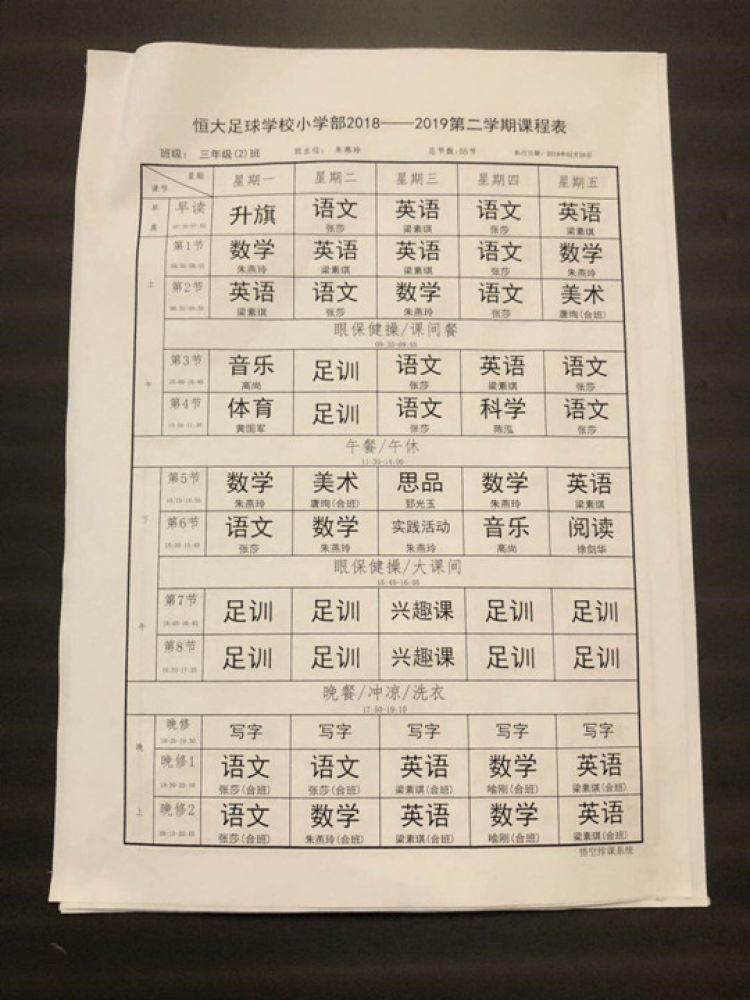 恒大足球学校小学部2018——2019第二学期课程表
班级： 三年级(2)班 班主任： 朱燕玲 总节数:55节
星期 课节 星期一 星期二 星期三 星期四 星期五
早读 升旗 语文 英语 语文 英语
张莎 梁素琪 张莎 梁素琪
第1节 数学 英语 英语 语文 数学
朱燕玲 梁素琪 梁素琪 张莎 朱燕玲
上
第2节 英语 语文 数学 语文 美术
梁素琪 张莎 朱燕玲 张莎 唐绚(合班)
眼保健操/课间餐
09:35-09:55
第3节 音乐 足训 语文 英语 语文
高尚 张莎 梁素琪 张莎
午
第4节 体育 足训 语文 科学 语文
黄国军 张莎 陈泓 张莎
午餐/午休
11:30-14:00
第5节 数学 美术 思品 数学 英语
朱燕玲 唐绚(合班) 郅光玉 朱燕玲 梁素琪
下
第6节 语文 数学 实践活动 音乐 阅读
张莎 朱燕玲 朱燕玲 高尚 徐剑华
眼保健操/大课间
15:45-16:05
第7节 足训 足训 兴趣课 足训 足训
午
第8节 足训 足训 兴趣课 足训 足训
晚餐/冲凉/洗衣
17:50-19:10
晚修 写字 写字 写字 写字 写字
晚
晚修1 语文 语文 英语 数学 英语
张莎(合班) 张莎(合班) 梁素琪(合班) 喻刚(合班) 梁素琪(合班)
上
晚修2 语文 数学 英语 数学 英语
张莎(合班) 朱燕玲(合班) 梁素琪(合班) 喻刚(合班) 梁素琪(合班)
悟空排课系统